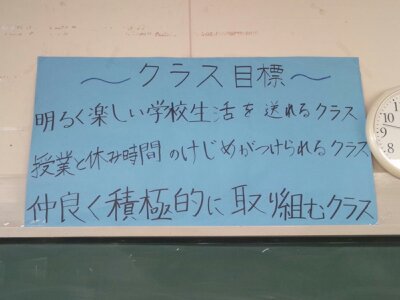 ～クラス目標～
明るく楽しい学校生活を送れるクラス
授業と休み時間のけじめがつけられるクラス
仲良く積極的に取り組むクラス